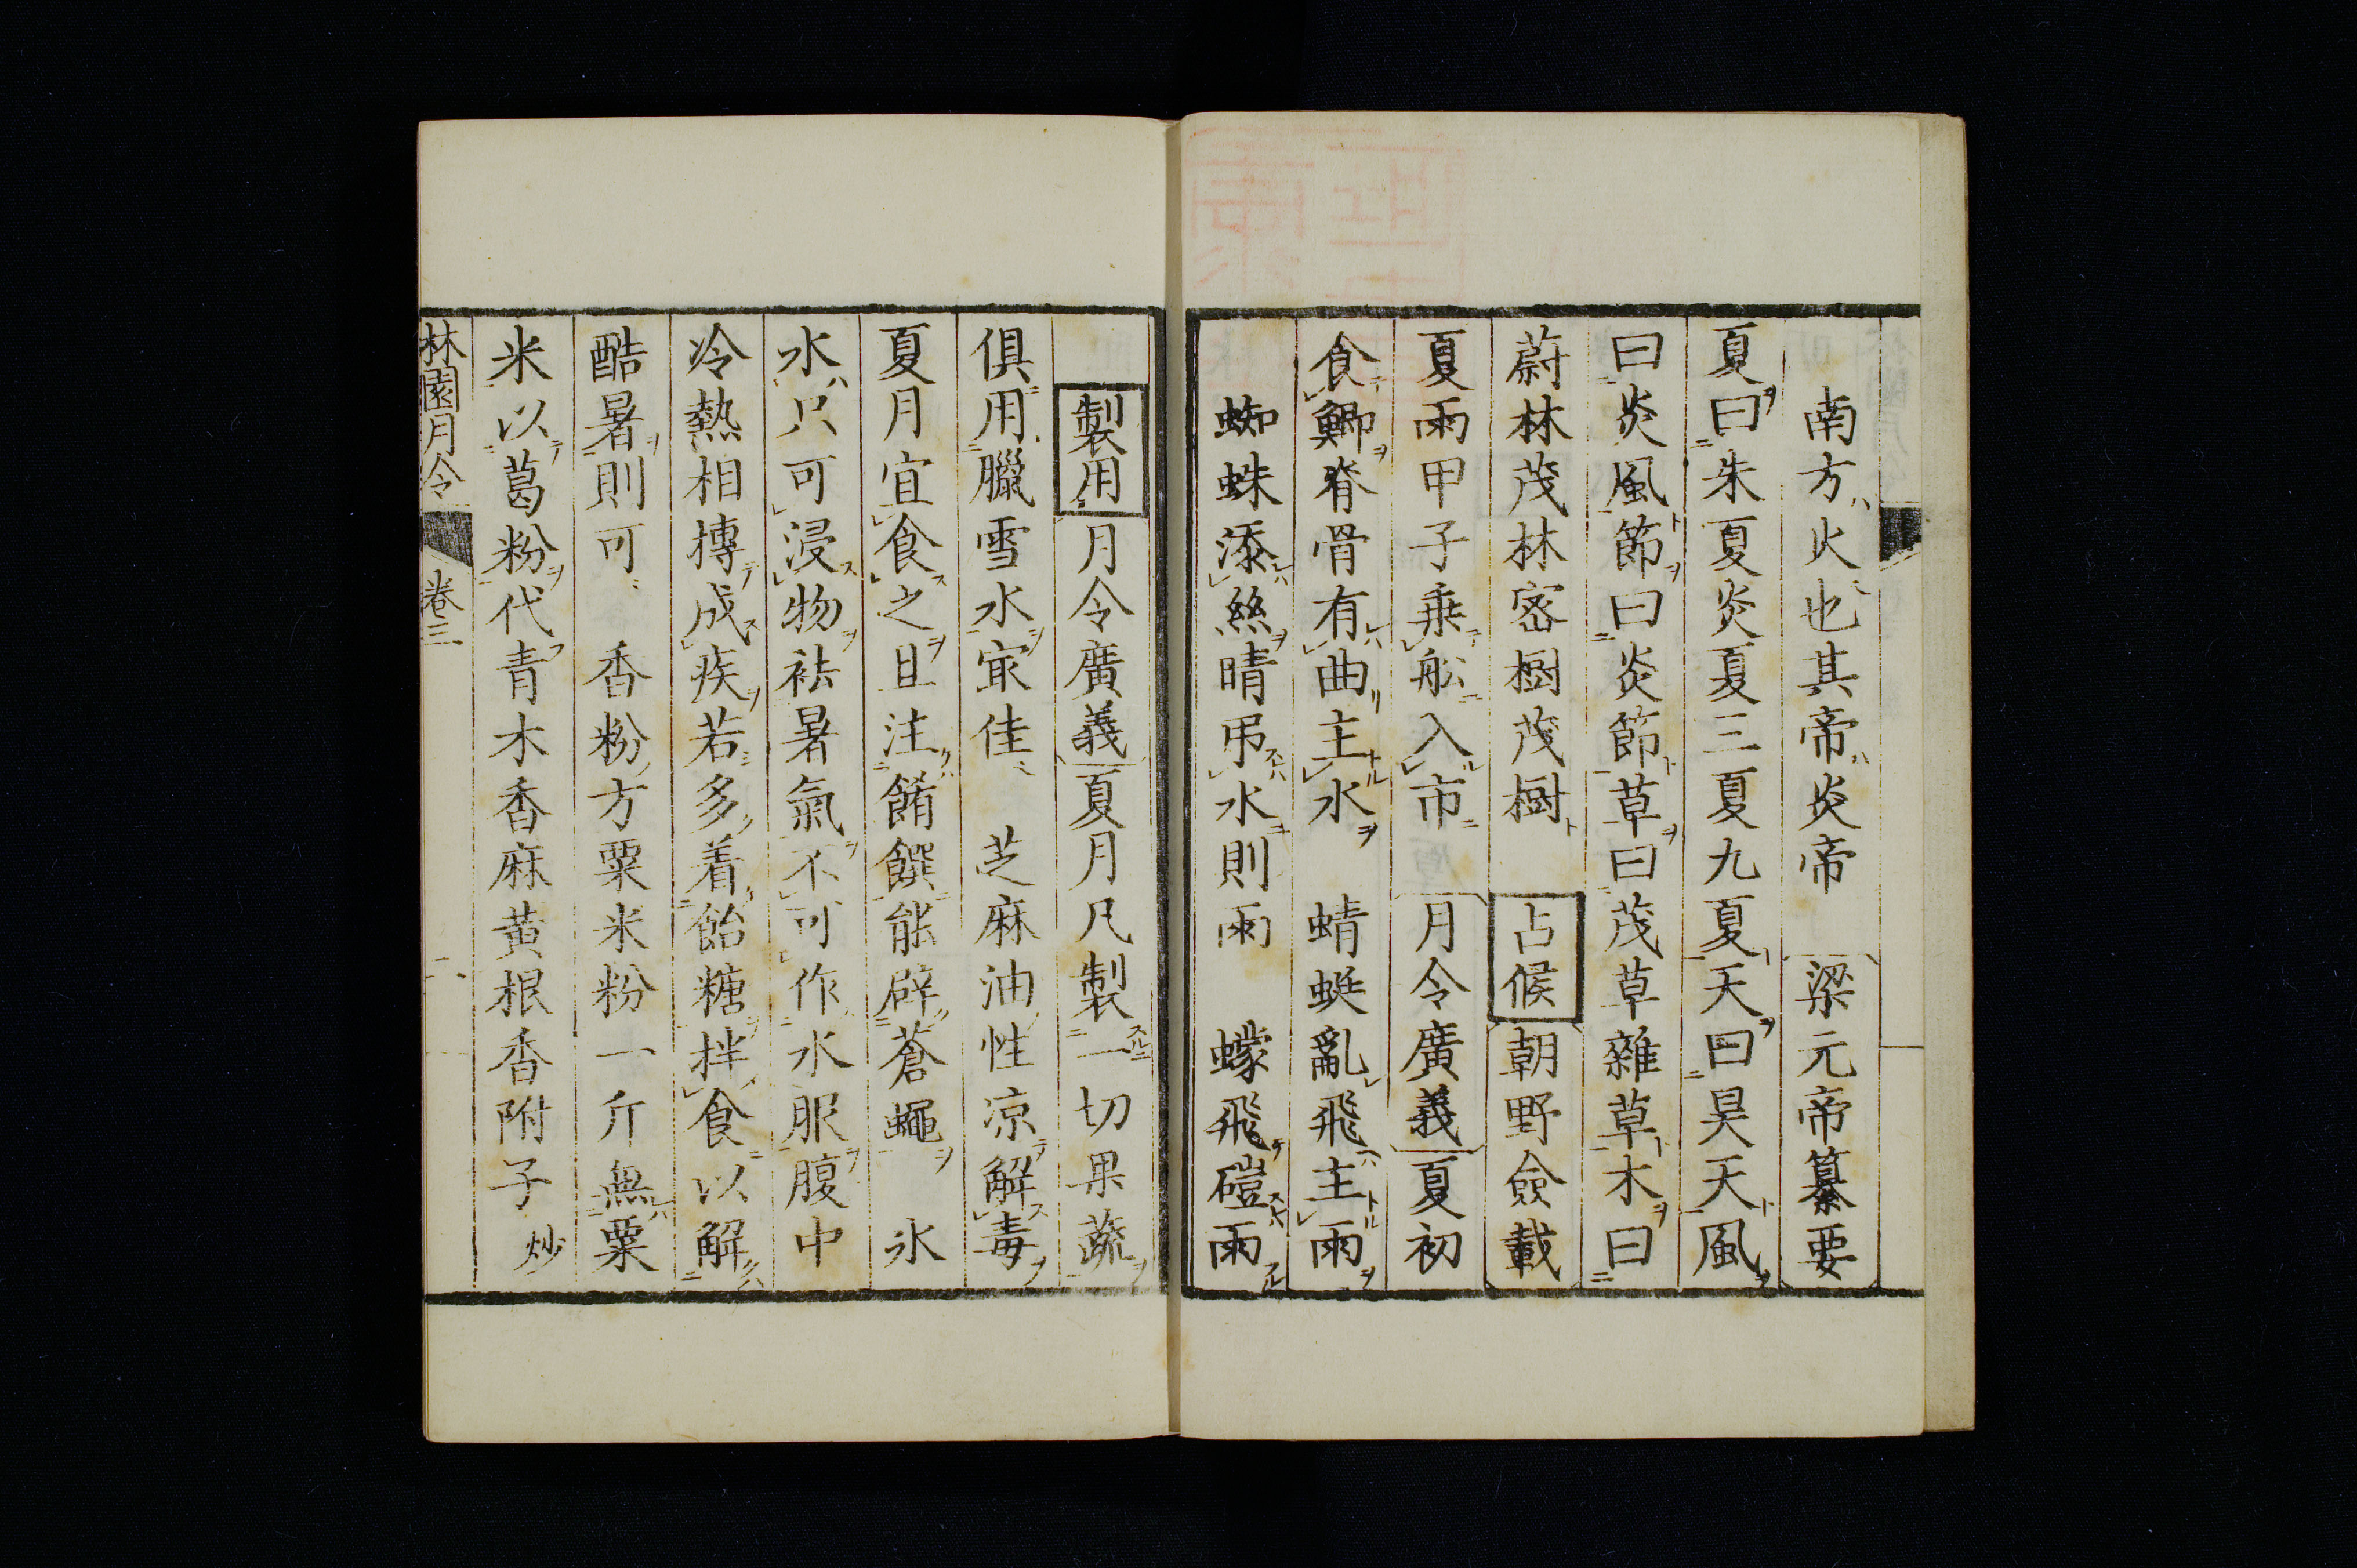 南方火也其帝炎帝　梁元帝纂要
夏曰朱夏炎夏三夏九夏天曰昊天風
曰炎風節曰炎節草曰茂草雜草木曰
蔚林茂林密樹茂樹　占候朝野僉載
夏雨甲子乗舩入市　月令廣義夏初
食鯽脊骨有曲主水　蜻蜓亂飛主雨
蜘蛛添絲晴吊水則雨　蠓飛磑雨
製用月令廣義夏月凡製一切果蔬
俱用臘雪水㝡佳　芝麻油性凉解毒
夏月宜食之且注餚饌能辟蒼蠅　氷
水只可浸物祛暑氣不可作水服腹中
冷熱相摶成疾若多着飴糖拌食以解
酷暑則可　香粉方粟米粉一斤無粟
米以葛粉代青木香麻黄根香附子炒
林園月令　卷三